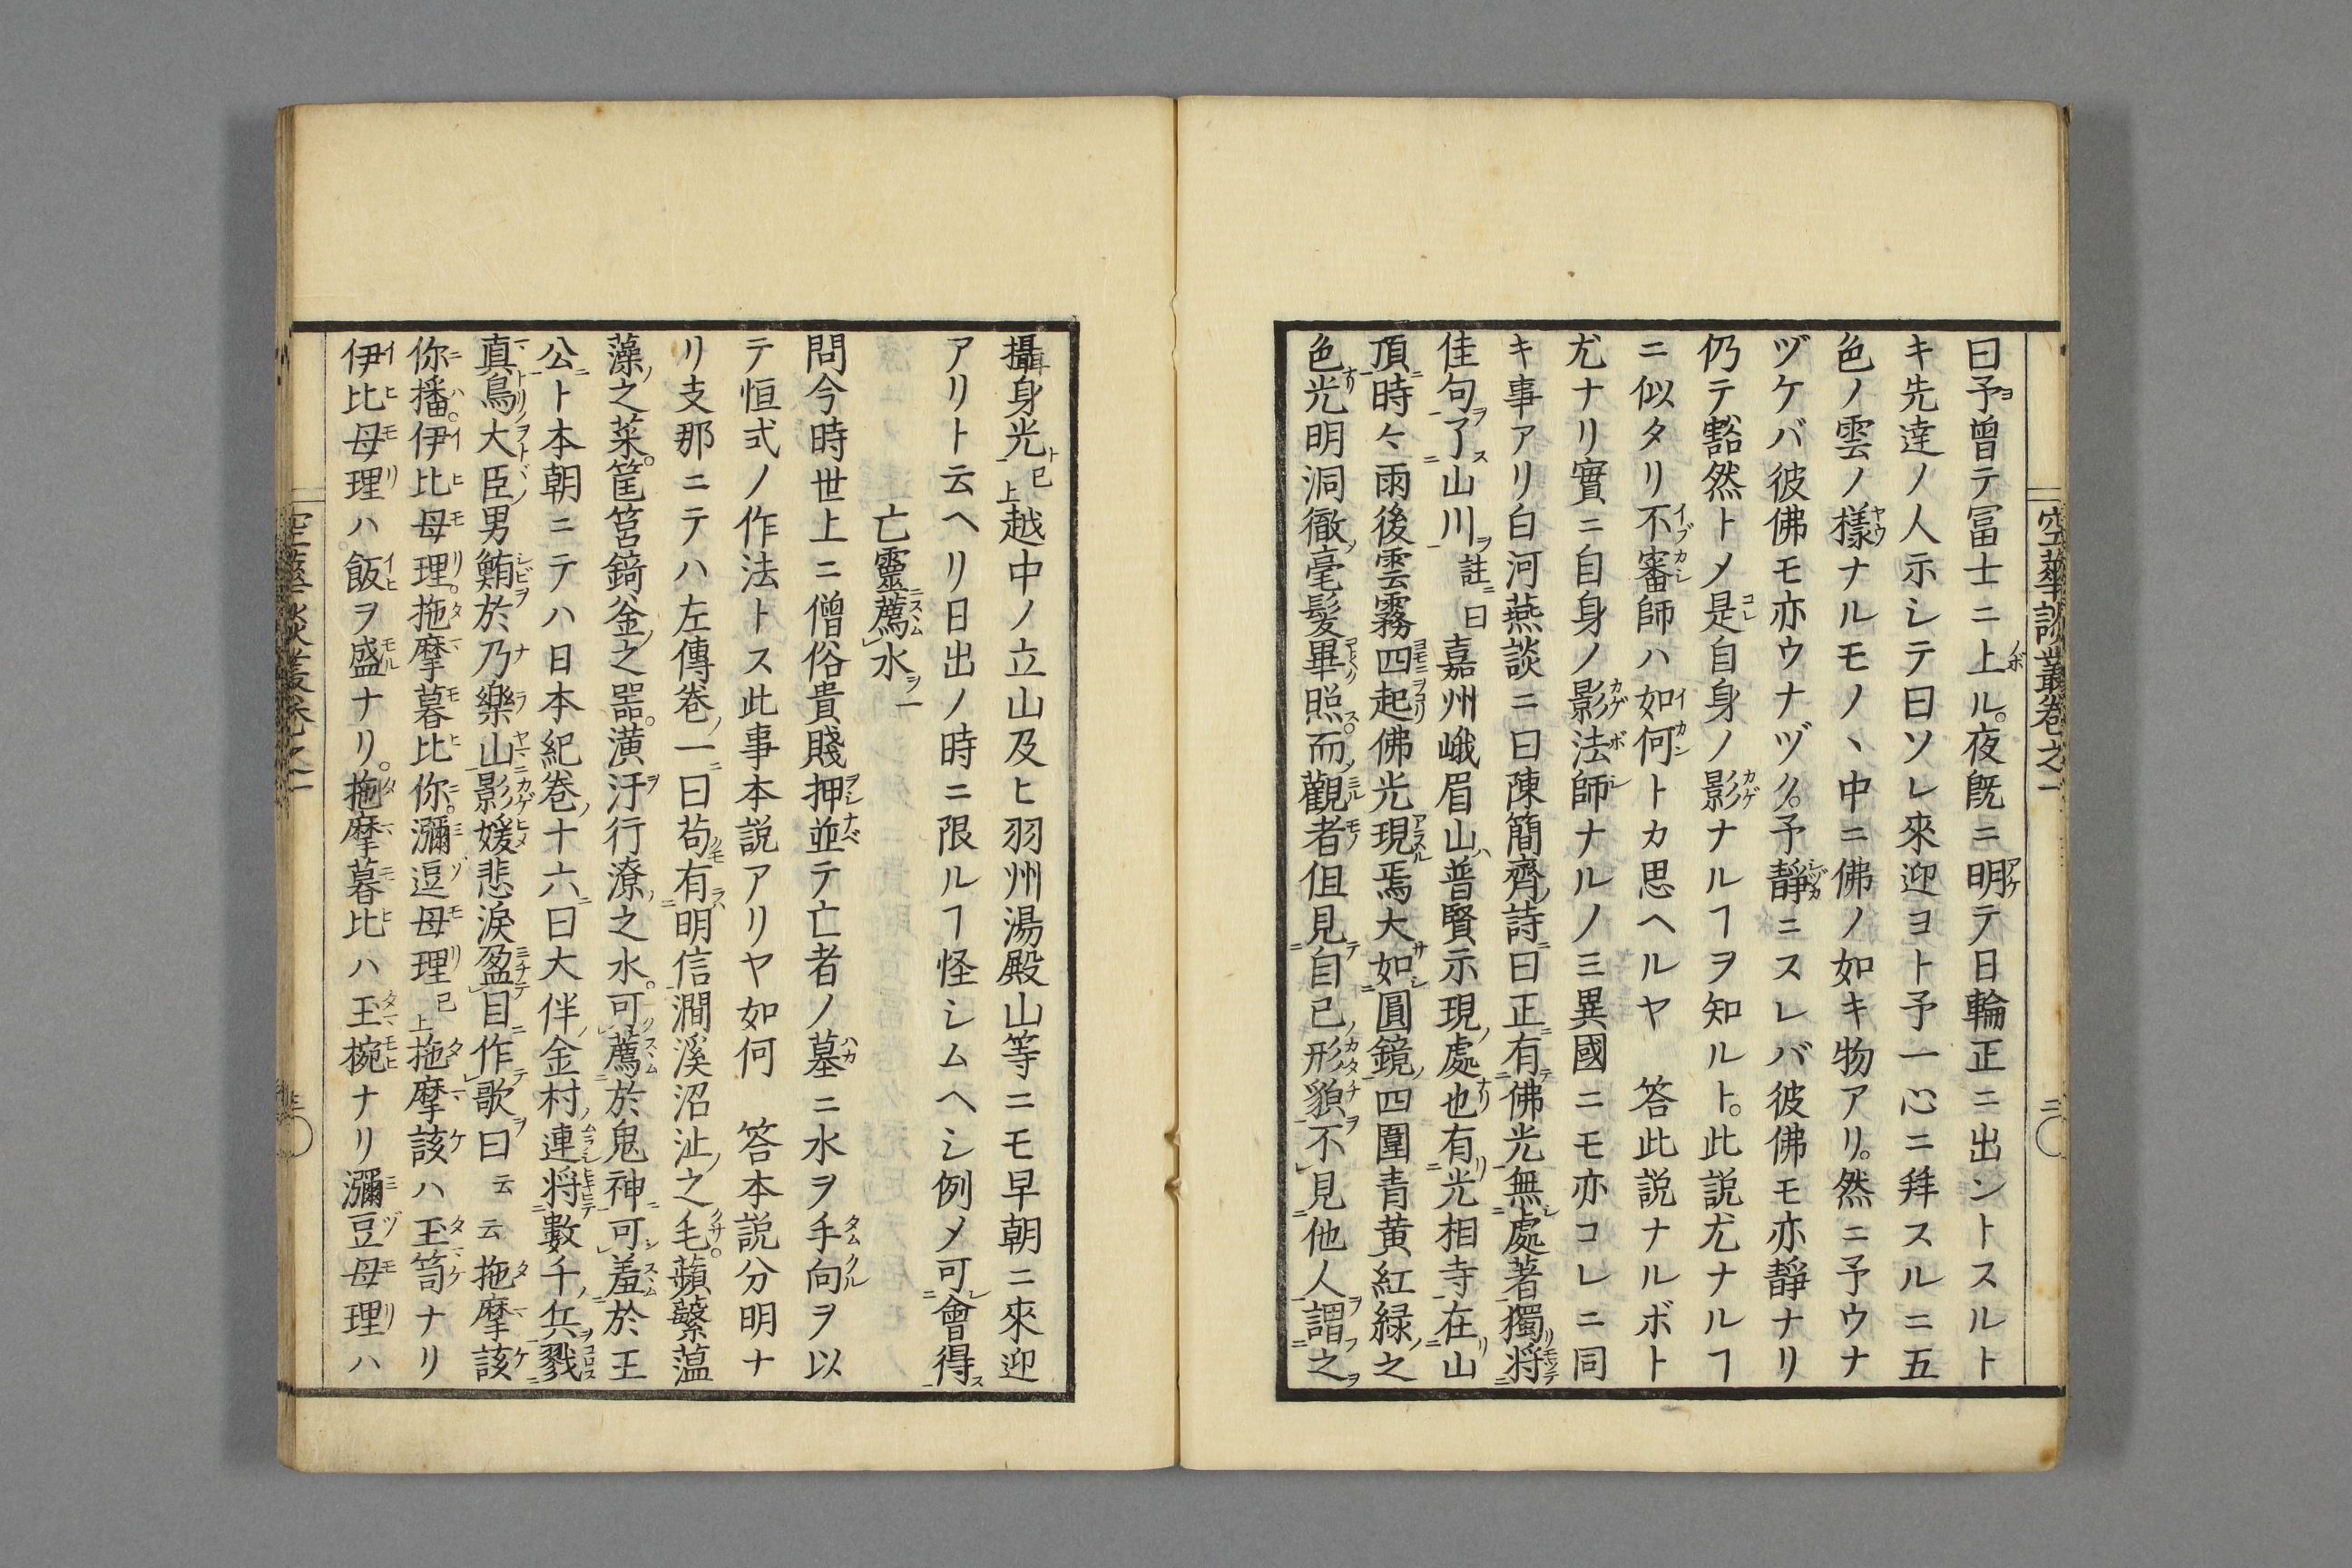 空華談叢卷之一
二
曰予曾テ冨士ニ上ル。夜旣ニ明テ日輪正ニ出ントスルト
キ先達ノ人示シテ曰ソレ來迎ヨト予一心ニ拜スルニ五
色ノ雲ノ樣ナルモノヽ中ニ佛ノ如キ物アリ。然ニ予ウナ
ヅケバ彼佛モ亦ウナヅク。予靜ニスレバ彼佛モ亦靜ナリ
仍テ豁然トメ是自身ノ影ナルヿヲ知ルト。此説尤ナルヿ
ニ似タリ不審師ハ如何トカ思ヘルヤ　答此説ナルボト
尤ナリ實ニ自身ノ影法師ナルノミ異國ニモ亦コレニ同
キ事アリ白河燕談ニ曰陳簡齊詩曰正有佛光無處著獨将
佳句了山川註曰嘉州峨眉山普賢示現處也有光相寺在山
頂時々雨後雲霧四起佛光現焉大如圓鏡四圍青黄紅緑之
色光明洞徹毫髮畢照而觀者但見自己形貌不見他人謂之
攝身光已上越中ノ立山及ヒ羽州湯殿山等ニモ早朝ニ來迎
アリト云ヘリ日出ノ時ニ限ルヿ怪シムヘシ例メ可會得
亡靈薦水
問今時世上ニ僧俗貴賤押並テ亡者ノ墓ニ水ヲ手向ヲ以
テ恒式ノ作法トス此事本説アリヤ如何　答本説分明ナ
リ支那ニテハ左傳卷一曰苟有明信澗溪沼沚之毛。蘋蘩薀
藻之菜。筐筥錡釜之噐。潢汙行潦之水。可薦於鬼神可羞於王
公ト本朝ニテハ日本紀卷十六曰大伴金村連将數千兵戮
真鳥大臣男鮪於乃樂山影媛悲涙盈目作歌曰云云拖摩該
你播。伊比母理。拖摩暮比你。瀰逗母理已上拖摩該ハ玉笥ナリ
伊比母理ハ飯ヲ盛ナリ。拖摩暮比ハ玉椀ナリ瀰豆母理ハ
空華談叢卷之一